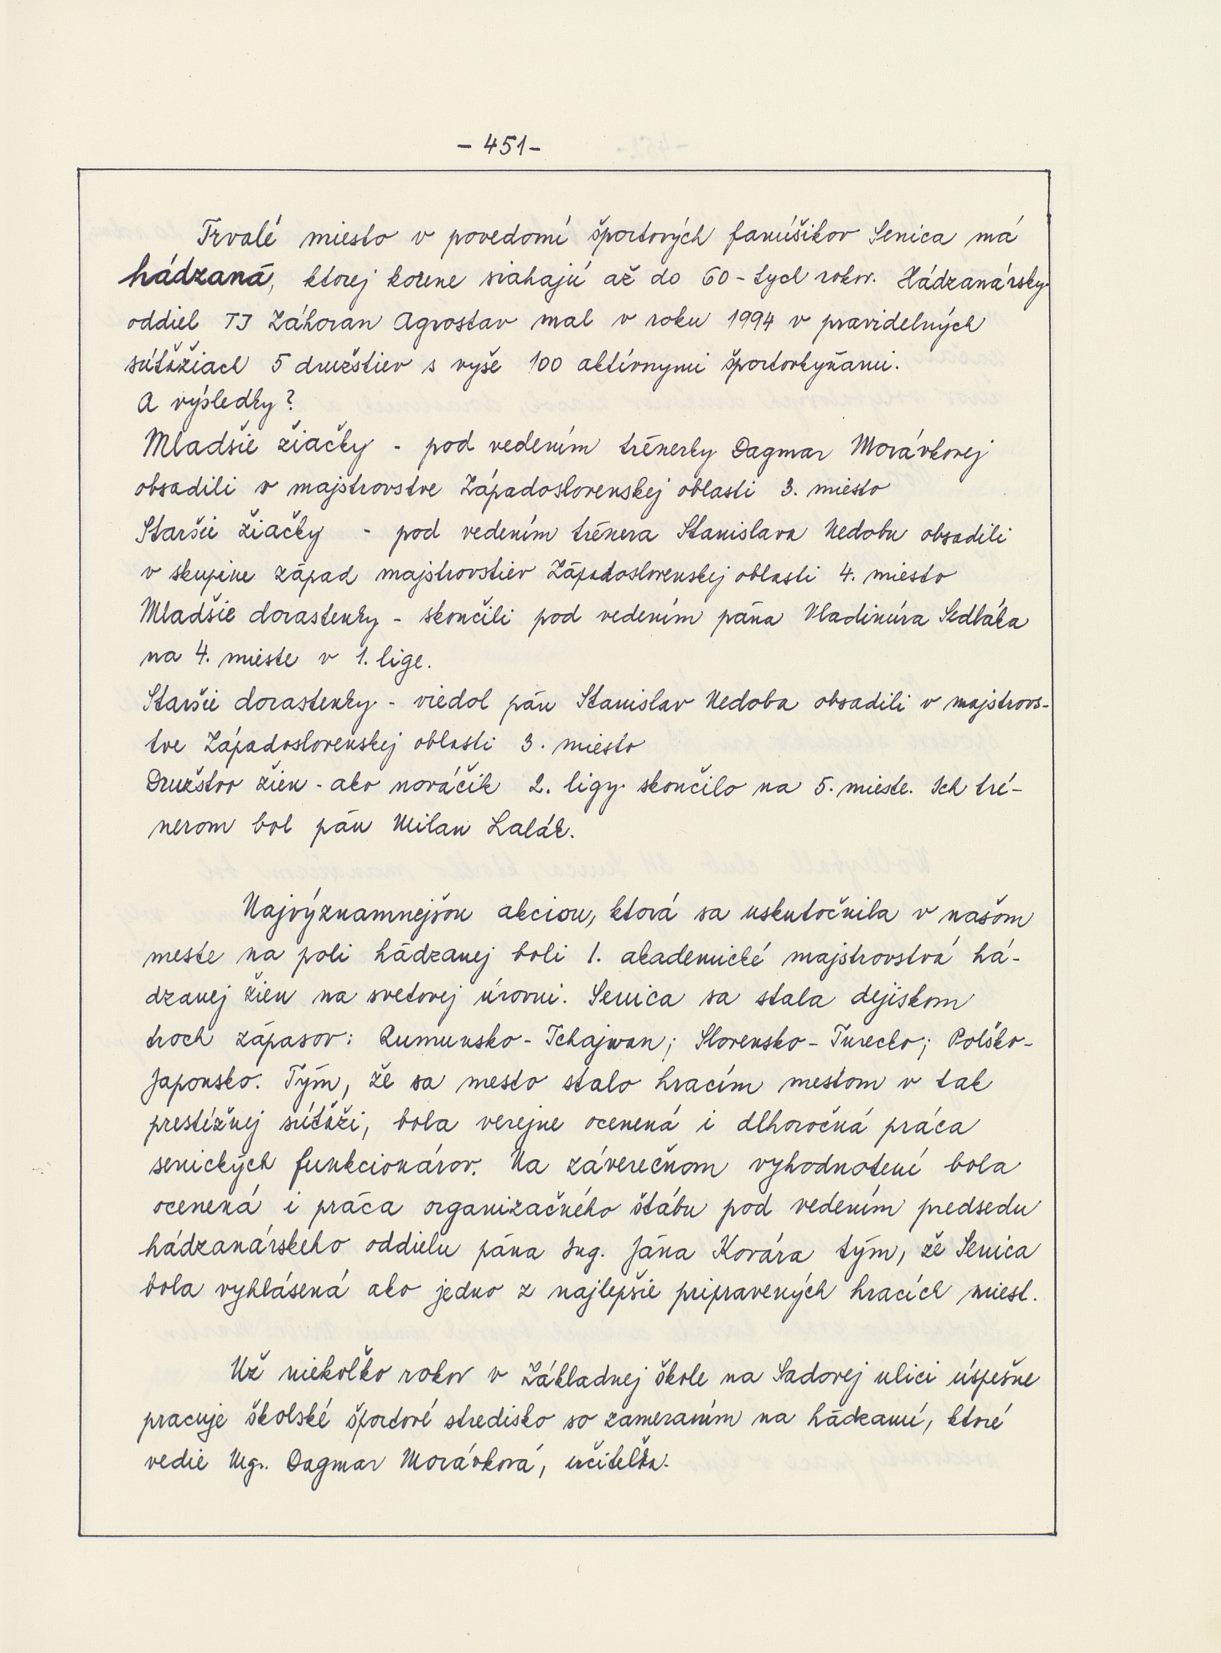 - 451 -
Trvalé miesto v povedomí športových fanúšikov Senica má
hádzaná, ktorej korene siahajú až do 60-tych rokov. Hádzanársky
oddiel TJ Záhoran Agrostav mal v roku 1994 v pravidelných
súťažiach 5 družstiev s vyše 100 aktívnymi športovkyňami.
A výsledky?
Mladšie žiačky - pod vedením trénerky Dagmar Morávkovej
obsadili v majstrovstve Západoslovenskej oblasti 3. miesto
Staršie žiačky - pod vedením trénera Stanislava Nedobu obsadili
v skupine západ majstrovstiev Západoslovenskej oblasti 4. miesto
Mladšie dorastenky - skončili pod vedením pána Vladimíra Sedláka
na 4. mieste v 1. lige.
Staršie dorastenky - viedol pán Stanislav Nedoba obsadili v majstrovs-
tve Západoslovenskej oblasti 3. miesto
Družstvo žien - ako nováčik 2. ligy skončilo na 5. mieste. Ich tré-
nerom bol pán Milan Lalák.
Najvýznamnejšou akciou, ktorá sa uskutočnila v našom
meste na poli hádzanej boli 1. akademické majstrovstvá há-
dzanej žien na svetovej úrovni. Senica sa stala dejiskom
troch zápasov: Rumunsko - Tchajwan; Slovensko - Turecko; Poľsko -
Japonsko. Tým, že sa mesto stalo hracím mestom v tak
prestížnej súťaži, bola verejne ocenená i dlhoročná práca
senických funkcionárov. Na záverečnom vyhodnotení bola
ocenená i práca organizačného štábu pod vedením predsedu
hádzanárskeho oddielu pána Ing. Jána Kovára tým, že Senica
bola vyhlásená ako jedno z najlepšie pripravených hracích miest.
Už niekoľko rokov v Základnej škole na Sadovej ulici úspešne
pracuje školské športové stredisko so zameraním na hádzanú, ktoré
vedie Mgr. Dagmar Morávková, učiteľka.